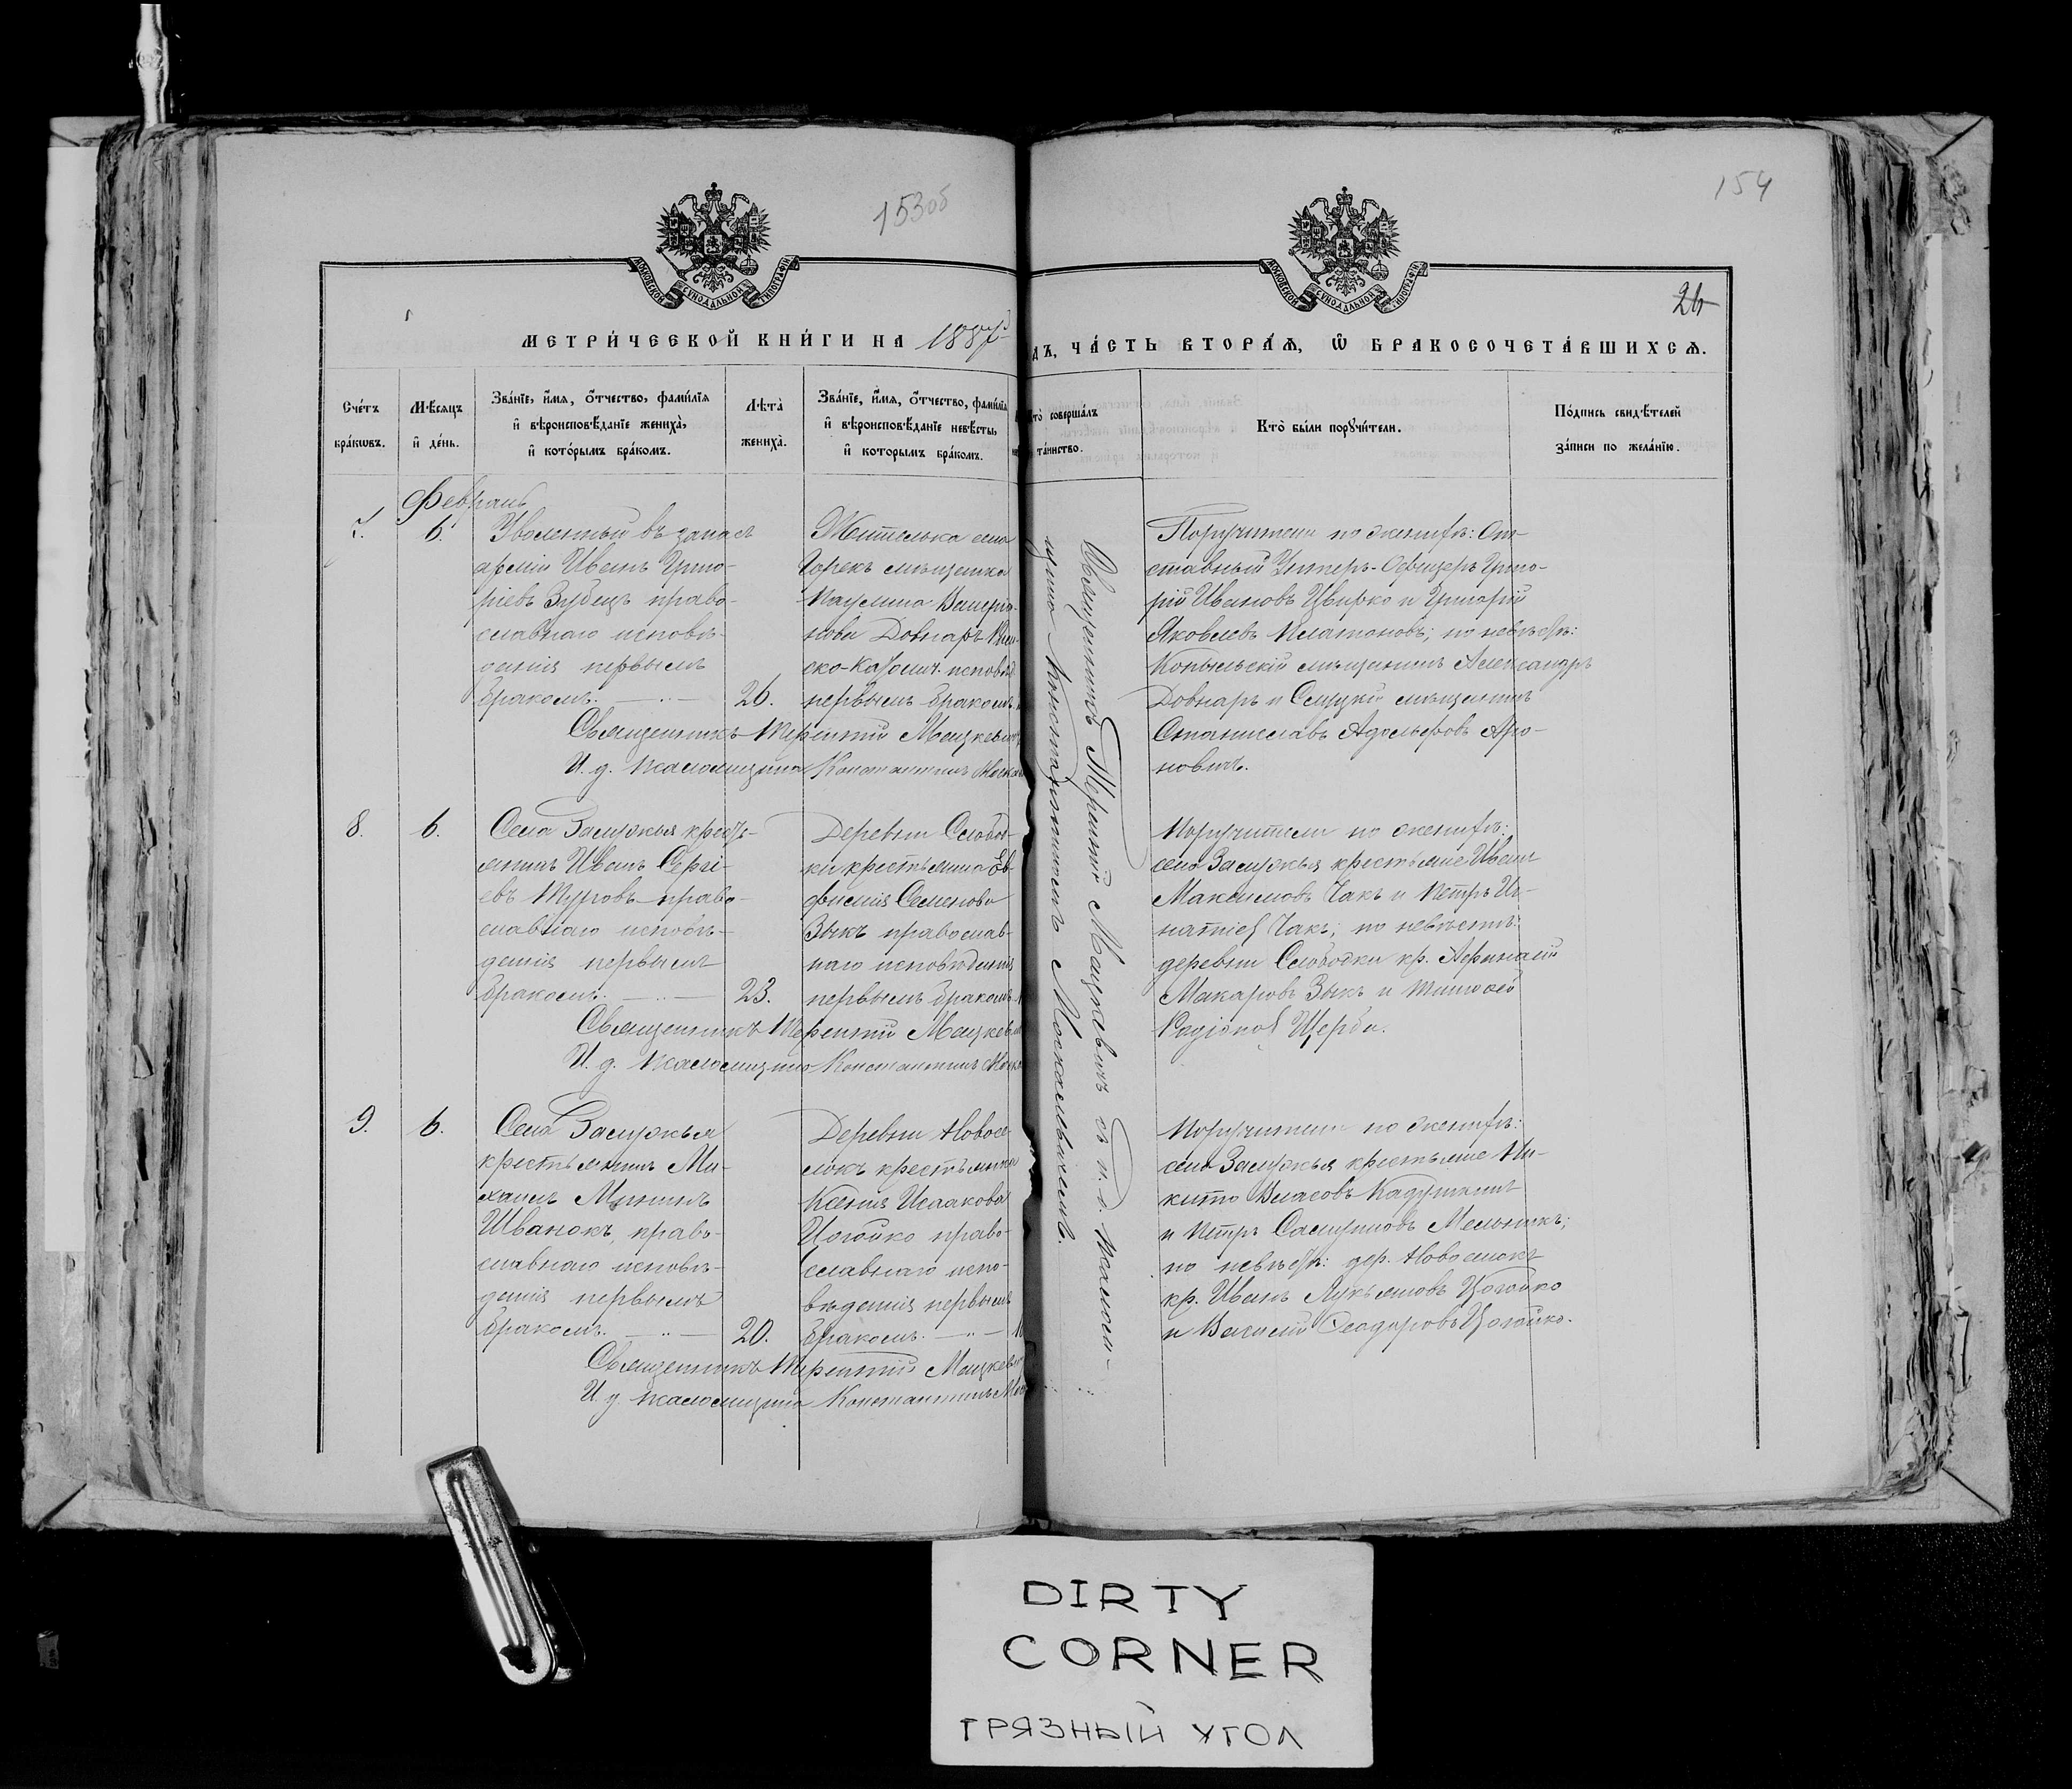 153об
154
МОСКОВСКОЙ СѴНОДАЛЬНОЙ ТИПОГРАФІИ
МОСКОВСКОЙ СѴНОДАЛЬНОЙ ТИПОГРАФІИ
26
МЕТРИ́ЧЕСКОЙ КНИ́ГИ НА 1887
ДЪ, ЧА́СТЬ ВТОРА́Ѧ, Ѡ БРАКОСОЧЕТА́ВШИХСѦ.
Сче́тъ бра́кѡвъ.
Мѣ́сѧцъ и҆ де́нь.
Зва́нїе, и҆́мѧ, ѻ҆́тчество, фами́лїѧ
и҆ вѣроисповѣ́данїе жениха̀,
и҆ кото́рымъ бра́комъ.
Лѣта̀ жениха̀.
Зва́нїе, и҆́мѧ, ѻ҆́тчество, фами́лїѧ
и҆ вѣроисповѣ́данїе невѣ́сты,
и҆ кото́рымъ бра́комъ.
Кто̀ соверша́лъ
та́инство.
Кто̀ бы́ли порꙋчи́тели.
По́дпись свидѣ́телей
за́писи по жела́нїю.
Февраль
7.
6.
Уволенный въ запасъ
арміи Иванъ Григо-
ріевъ Зубецъ право-
славнаго исповѣ-
данія первымъ
бракомъ. 26.
Жителька села
Горекъ мѣщанка
Паулина Валерiа-
нова Довнаръ Рим-
ско-Католич. исповѣд.
первымъ бракомъ
Священникъ Терентій Мацкевичъ
И. д. псаломщика Константинъ Моска
Священникъ Терентій Мацкевичъ съ и. д. псалом-
щика Константиномъ Москалевичемъ.
Поручители по женихѣ: От-
ставный Унтеръ-Офицеръ Григо-
рій Ивановъ Цвирко и Григорій
Яковлевъ Платоновъ; по невѣстѣ:
Копыльскій мѣщанинъ Александръ
Довнаръ и Слуцкій мѣщанинъ
Станиславъ Адольфовъ Аро-
новичъ.
8.
6.
Села Замужья кресть-
янинъ Иванъ Сергі-
евъ Туровъ право-
славнаго исповѣ-
данія первымъ
бракомъ. 23.
Деревни Слобод-
ки крестьянка Ев-
фимія Семенова
Зыкъ православ-
наго исповѣданія
первымъ бракомъ
Священникъ Терентій Мацкевич
И. д. псаломщика Константинъ Моск
Поручители по женихѣ:
села Замужья крестьяне Иванъ
Максимовъ Чакъ и Петръ Иг-
натіев Чакъ; по невѣстѣ:
деревни Слободки кр. Аѳанасій
Макаровъ Зыкъ и Тимоѳей
Щерба.
9.
6.
Села Замужья
крестьянинъ Ми-
хаилъ Мининъ
Шванокъ, право-
славнаго исповѣ-
данія первымъ
бракомъ. 20.
Деревни Новосе-
локъ крестьянка
Ксенія Исаакова
Цогойко право-
славнаго испо-
вѣданія первымъ
бракомъ.
Священникъ Терентій Мацкев
И. д. псаломщика Константинъ Мос
Поручители по женихѣ:
села Замужья крестьяне Ни-
кита Власовъ Кадушкинъ
и Петръ Самуиловъ Мельникъ;
по невѣстѣ: дер. Новоселокъ
кр. Иванъ Лукьяновъ Цогойко
и Василій Ѳеодоровъ Цогойко.
DIRTY
CORNER
ГРЯЗНЫЙ УГОЛ